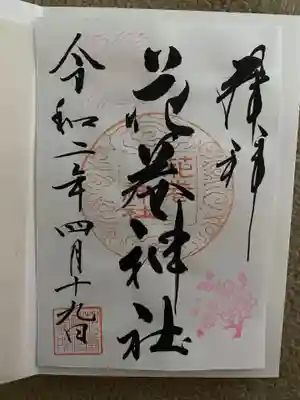 奉拝
花巻神社
令和二年四月十九日